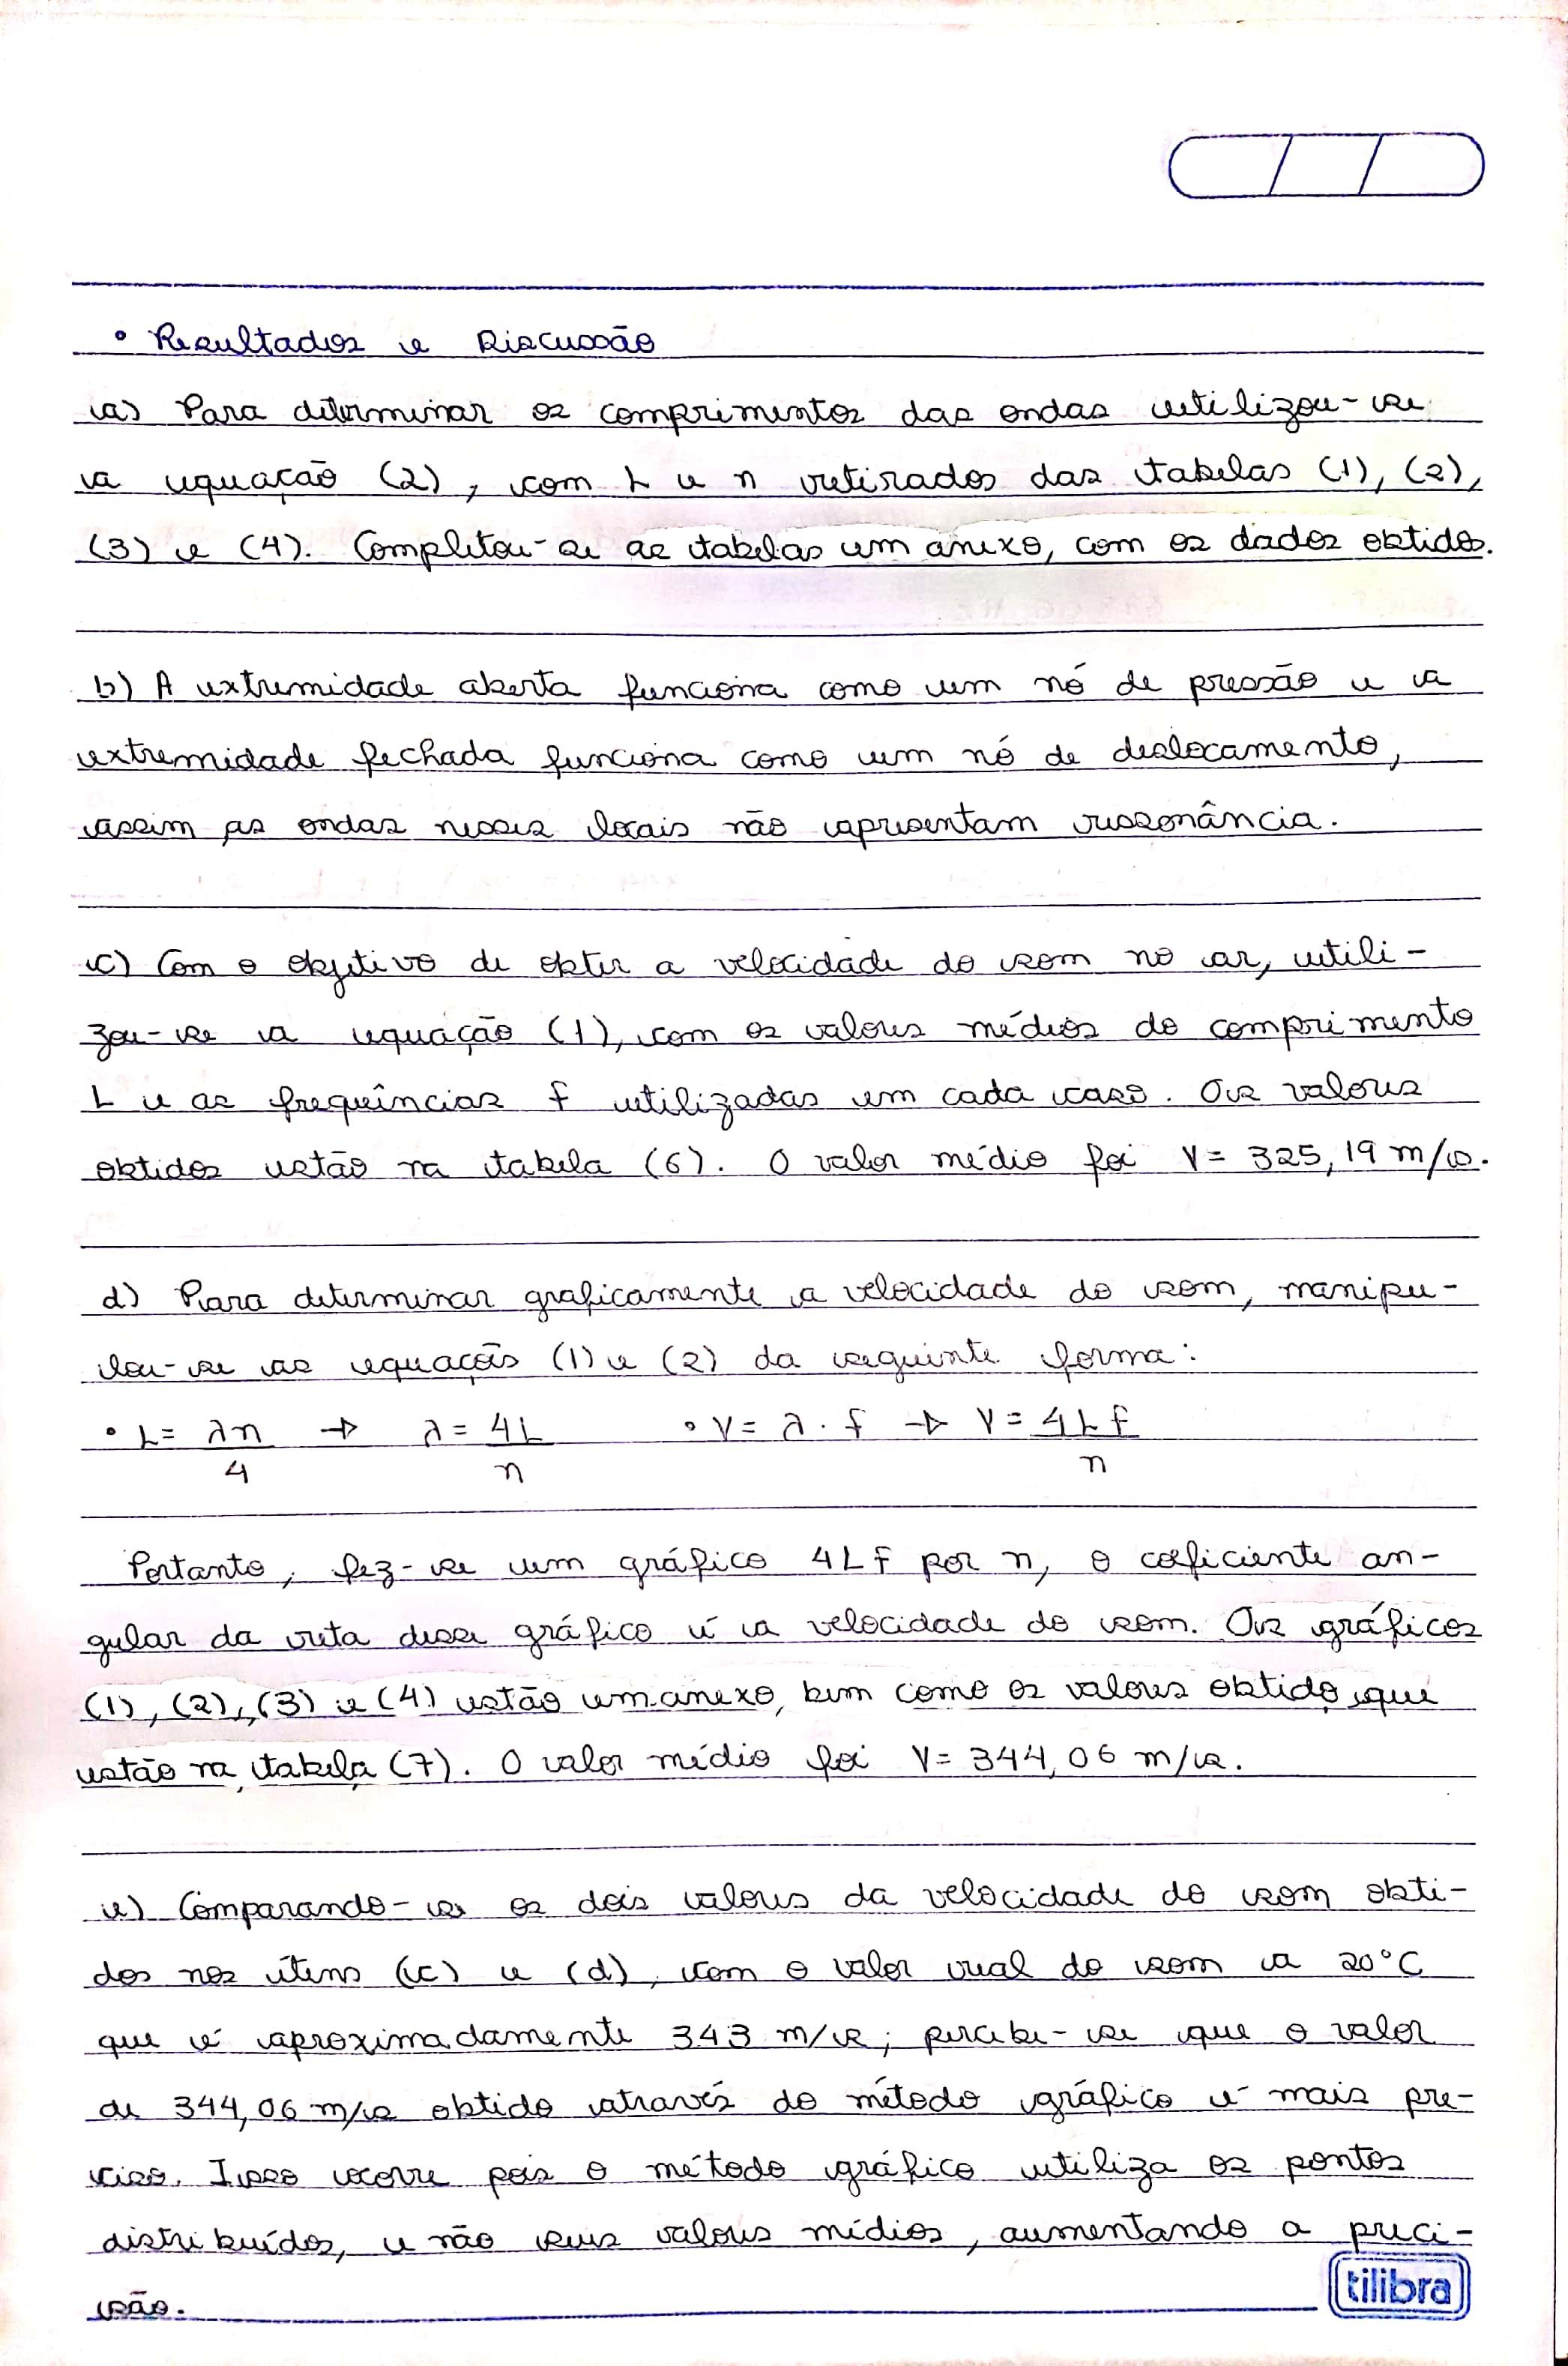 • Resultados e Discussão
a) Para determinar os comprimentos das ondas utilizou-se
a equação (2), com L e n retirados das tabelas (1), (2),
(3) e (4). Completou-se as tabelas em anexo, com os dados obtidos.
b) A extremidade aberta funciona como um nó de pressão e a
extremidade fechada funciona como um nó de deslocamento,
assim as ondas nesses locais não apresentam ressonância.
c) Com o objetivo de obter a velocidade do som no ar, utili-
zou-se a equação (1), com os valores médios do comprimento
L e as frequências f utilizadas em cada caso. Os valores
obtidos estão na tabela (6). O valor médio foi V = 325,19 m/s.
d) Para determinar graficamente a velocidade do som, manipu-
lou-se as equações (1) e (2) da seguinte forma:
• L = λn/4 → λ = 4L/n • V = λ . f → V = 4Lf/n
Portanto, fez-se um gráfico 4Lf por n, o coeficiente an-
gular da reta desse gráfico é a velocidade do som. Os gráficos
(1), (2), (3) e (4) estão em anexo, bem como os valores obtido que
estão na tabela (7). O valor médio foi V = 344,06 m/s.
e) Comparando-se os dois valores da velocidade do som obti-
dos nos ítens (c) e (d), com o valor real do som a 20°C
que é aproximadamente 343 m/s; percebe-se que o valor
de 344,06 m/s obtido através do método gráfico é mais pre-
ciso. Isso ocorre pois o método gráfico utiliza os pontos
distribuídos, e não seus valores médios, aumentando a preci-
são.
tilibra